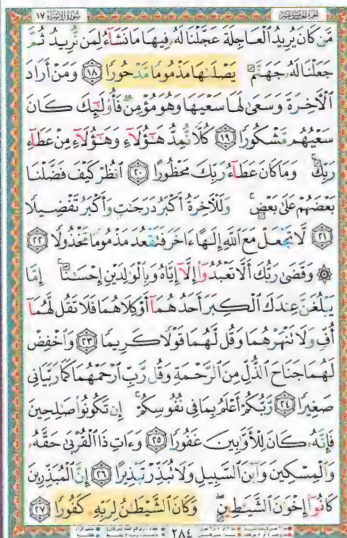 سُورَةُ الإِسْرَاءِ ١٧
مَّن كَانَ يُرِيدُ الْعَاجِلَةَ عَجَّلْنَا لَهُ فِيهَا مَا نَشَاءُ لِمَن نُّرِيدُ ثُمَّ
جَعَلْنَا لَهُ جَهَنَّمَ يَصْلَاهَا مَذْمُومًا مَّدْحُورًا ١٨ وَمَنْ أَرَادَ
الْآخِرَةَ وَسَعَىٰ لَهَا سَعْيَهَا وَهُوَ مُؤْمِنٌ فَأُولَٰئِكَ كَانَ
سَعْيُهُم مَّشْكُورًا ١٩ كُلًّا نُّمِدُّ هَٰؤُلَاءِ وَهَٰؤُلَاءِ مِنْ عَطَاءِ
رَبِّكَ وَمَا كَانَ عَطَاءُ رَبِّكَ مَحْظُورًا ٢٠ انظُرْ كَيْفَ فَضَّلْنَا
بَعْضَهُمْ عَلَىٰ بَعْضٍ وَلَلْآخِرَةُ أَكْبَرُ دَرَجَاتٍ وَأَكْبَرُ تَفْضِيلًا
٢١ لَّا تَجْعَلْ مَعَ اللَّهِ إِلَٰهًا آخَرَ فَتَقْعُدَ مَذْمُومًا مَّخْذُولًا ٢٢
۞ وَقَضَىٰ رَبُّكَ أَلَّا تَعْبُدُوا إِلَّا إِيَّاهُ وَبِالْوَالِدَيْنِ إِحْسَانًا إِمَّا
يَبْلُغَنَّ عِندَكَ الْكِبَرَ أَحَدُهُمَا أَوْ كِلَاهُمَا فَلَا تَقُل لَّهُمَا
أُفٍّ وَلَا تَنْهَرْهُمَا وَقُل لَّهُمَا قَوْلًا كَرِيمًا ٢٣ وَاخْفِضْ
لَهُمَا جَنَاحَ الذُّلِّ مِنَ الرَّحْمَةِ وَقُل رَّبِّ ارْحَمْهُمَا كَمَا رَبَّيَانِي
صَغِيرًا ٢٤ رَّبُّكُمْ أَعْلَمُ بِمَا فِي نُفُوسِكُمْ إِن تَكُونُوا صَالِحِينَ
فَإِنَّهُ كَانَ لِلْأَوَّابِينَ غَفُورًا ٢٥ وَآتِ ذَا الْقُرْبَىٰ حَقَّهُ
وَالْمِسْكِينَ وَابْنَ السَّبِيلِ وَلَا تُبَذِّرْ تَبْذِيرًا ٢٦ إِنَّ الْمُبَذِّرِينَ
كَانُوا إِخْوَانَ الشَّيَاطِينِ وَكَانَ الشَّيْطَانُ لِرَبِّهِ كَفُورًا ٢٧
٢٨٤